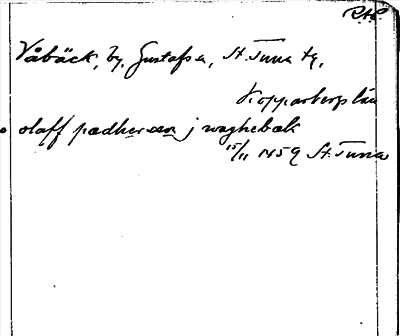 Våbäck, by, Gustafs sn, St. Tuna tg,
Kopparbergs län
olaff pædhersson j waghebæk
15/11 1459 St. Tuna